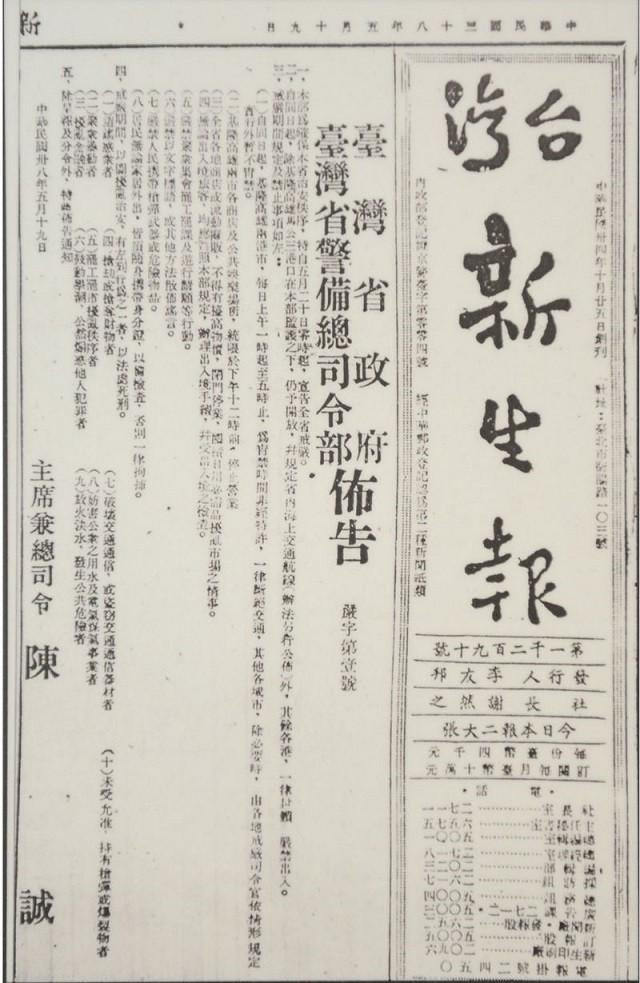 中華民國三十八年五月十九日
新
台灣新生報
中華民國卅四年十月廿五日創刊
社址：臺北市衡陽路一〇三號
內政部登記證京警臺字第零零四號
經中華郵政登記認為第二種新聞紙類
第一千二百九十號
發行人 李友邦
社長 謝然之
今日本報二大張
每份臺幣四千元
訂閱每月臺幣十萬元
電話
臺灣省政府
臺灣省警備總司令部
佈告
嚴字第壹號
一、本部為確保本省治安秩序，特自五月二十日零時起，宣告全省戒嚴。
二、自同日起，除基隆高雄馬公三港口在本部監護之下，仍予開放，并規定省內海上交通航線（辦法另行公佈）外，其餘各港，一律封鎖，嚴禁出入。
三、戒嚴期間規定及禁止事項如左：
（一）自同日起，基隆高雄兩港市，每日上午一時起至五時止，為宵禁時間，非經特許，一律斷絕交通，其他各城市，除必要時，由各地戒嚴司令官依情形規定
實行外，暫不宵禁。
（二）基隆高雄兩市各商店及公共娛樂場所，統限於下午十二時前，停止營業。
（三）全省各地商店或流動攤販，不得有擡高物價，閉門停業，囤積日用必需品擾亂市場之情事。
（四）無論出入境旅客，均應遵照本部規定，辦理出入境手續，并受出入境之檢查。
（五）嚴禁聚眾集會罷工罷課及遊行請願等行動。
（六）嚴禁以文字標語，或其他方法散佈謠言。
（七）嚴禁人民攜帶槍彈武器或危險物品。
（八）居民無論家居外出，皆須隨身攜帶身分證，以備檢查，否則一律拘捕。
四、戒嚴期間，以意圖擾亂治安，有左列行為之一者，以法處死刑。
（一）造謠惑眾者
（二）聚眾暴動者
（三）擾亂金融者
（四）搶劫或搶奪財物者
（五）罷工罷市擾亂秩序者
（六）鼓動學潮，公然煽惑他人犯罪者
（七）破壞交通通信，或盜竊交通通信器材者
（八）妨害公眾之用水及電氣煤氣事業者
（九）放火決水，發生公共危險者
（十）未受允准，持有槍彈或爆裂物者
五、除呈報及分令外，特此佈告通知
中華民國卅八年五月十九日
主席兼總司令 陳誠